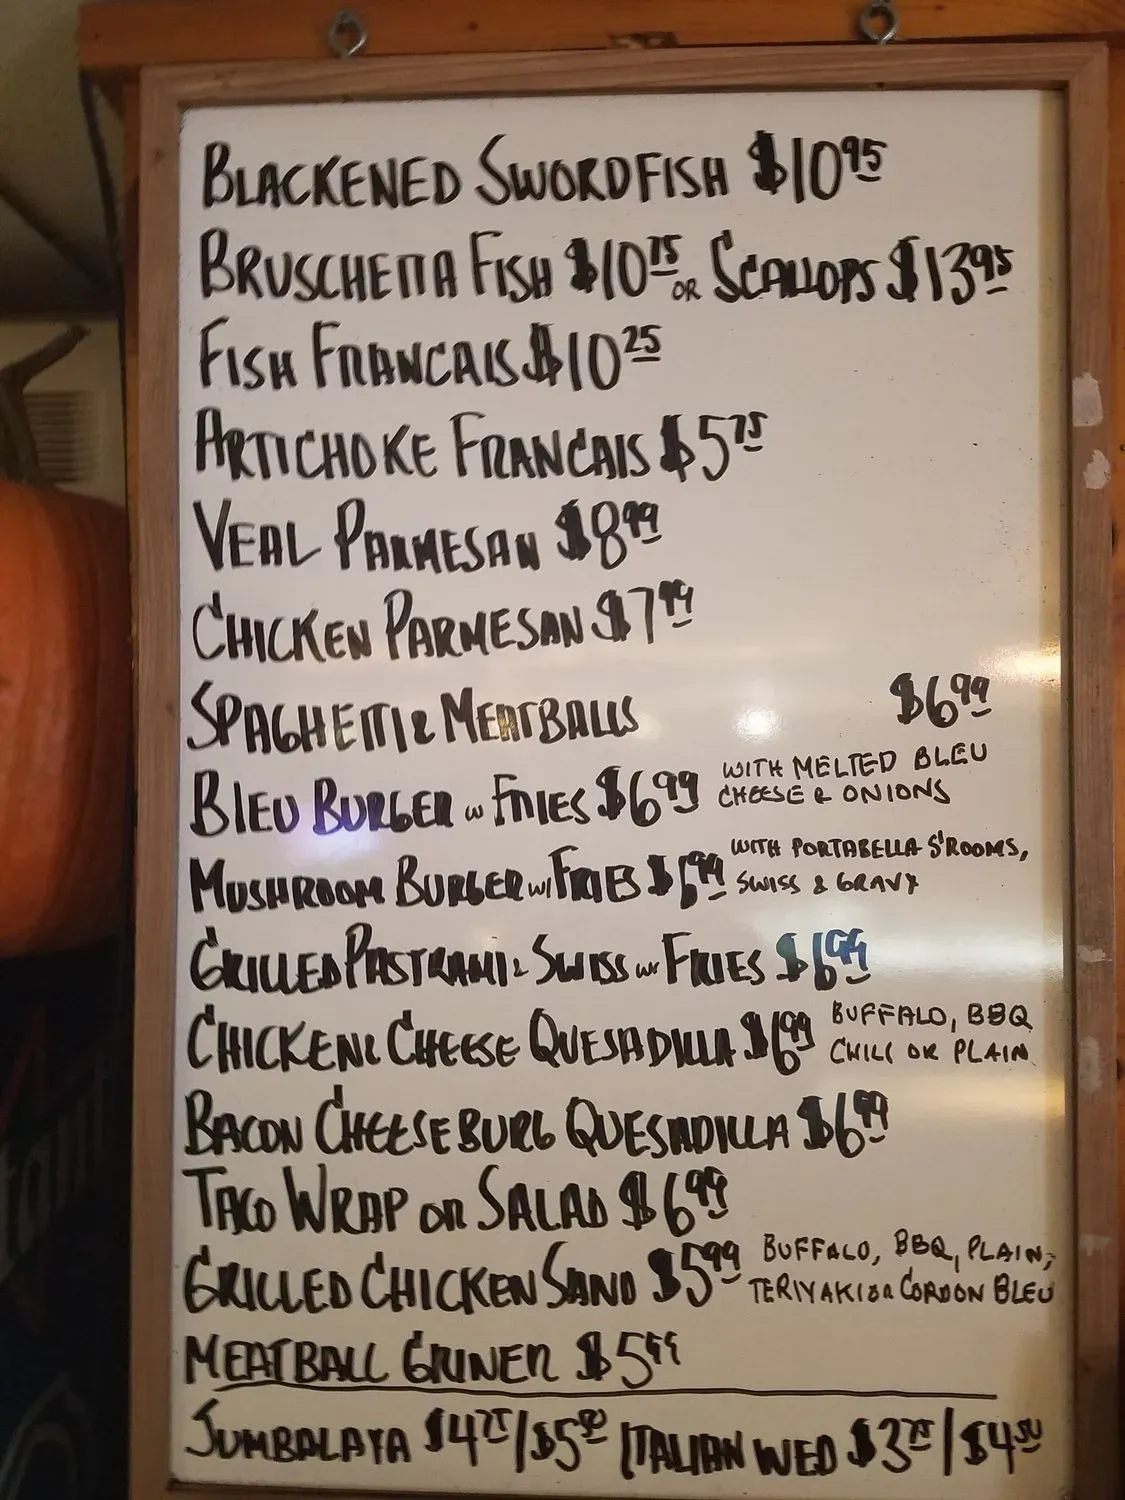 BLACKENED SWORDFISH $10.95
BRUSCHETTA FISH $10.75 OR SCALLOPS $13.95
FISH FRANCAIS $10.25
ARTICHOKE FRANCAIS $5.75
VEAL PARMESAN $8.99
CHICKEN PARMESAN $7.99
SPAGHETTI & MEATBALLS $6.99
BLEU BURGER w FRIES $6.99 WITH MELTED BLEU
CHEESE & ONIONS
MUSHROOM BURGER w/ FRIES $6.99 WITH PORTABELLA S'ROOMS,
SWISS & GRAVY
GRILLED PASTRAMI & SWISS w/ FRIES $6.99
CHICKEN & CHEESE QUESADILLA $6.99 BUFFALO, BBQ
CHILI OR PLAIN
BACON CHEESEBURG QUESADILLA $6.99
TACO WRAP OR SALAD $6.99
GRILLED CHICKEN SAND $5.99 BUFFALO, BBQ, PLAIN,
TERIYAKI OR CORDON BLEU
MEATBALL GRINER $5.99
JUMBALAYA $4.75/$5.50 ITALIAN WED $3.75/$4.50